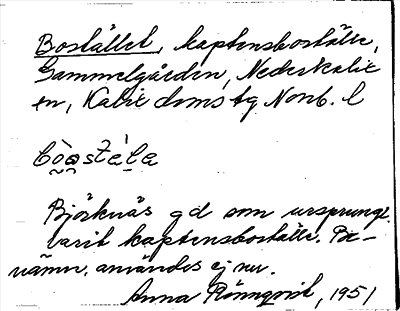 Bostället, kaptensboställe,
Gammelgården, Nederkalix
en, Kalix doms tg. Norrb. l
bò̰a̰stà̰ḻa
Björknäs gd som ursprungl.
varit kaptensboställe. Be-
nämn. användes ej nu.
Anna Rönnqvist, 1951